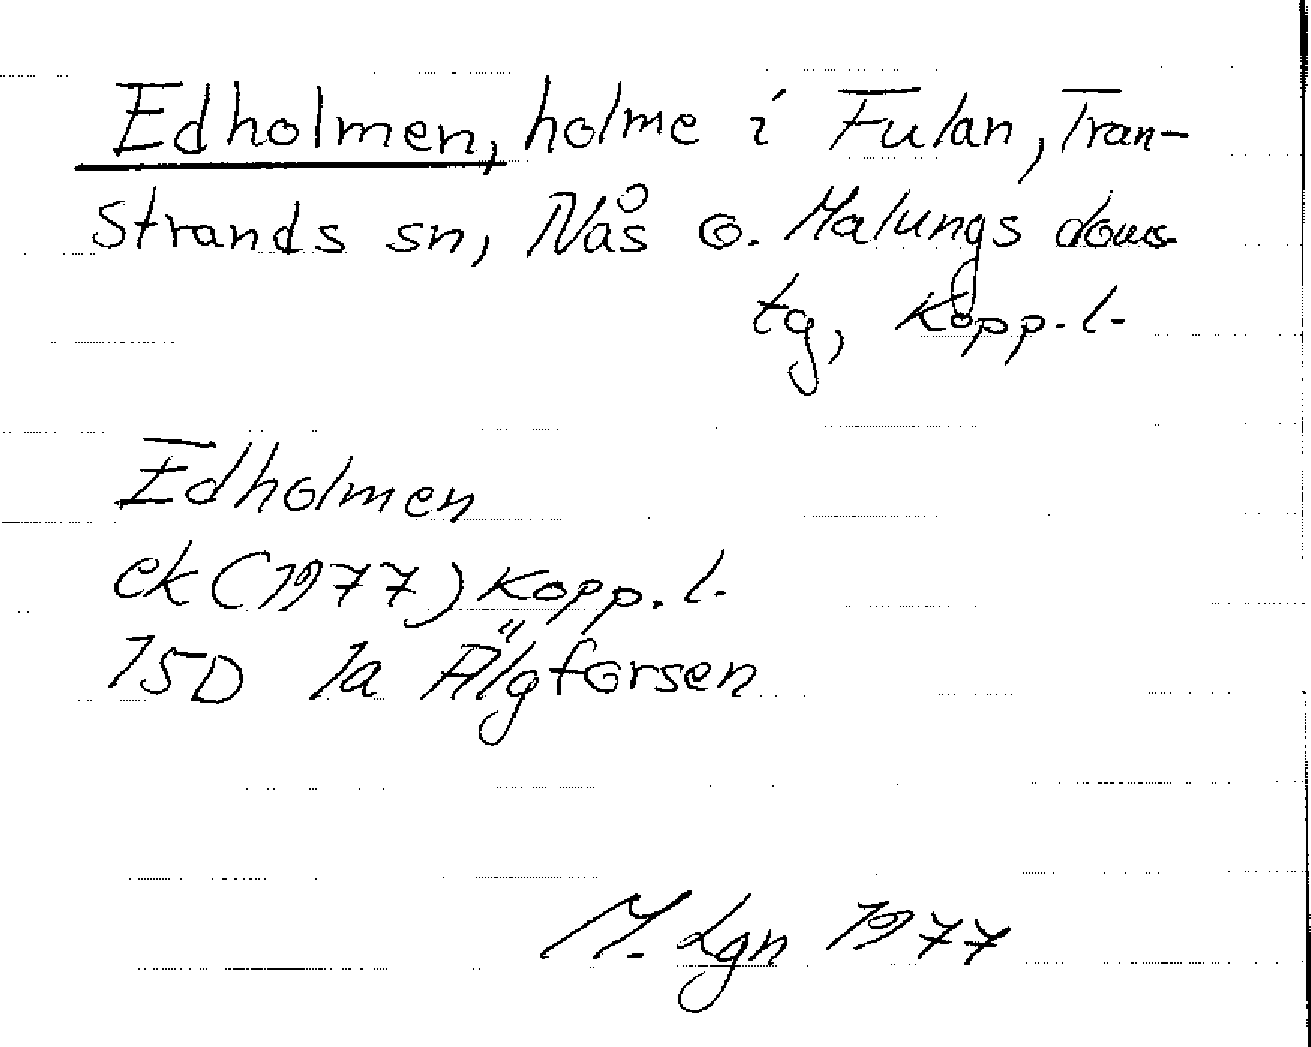 Edholmen, holme i Fulan, Tran-
Strands sn, Nås o. Malungs doms
tg, Kopp. l.
Edholmen
ek (1977) Kopp. l.
15D 1a Älgforsen
M. Lgn 1977